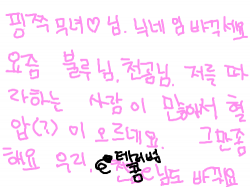 핑쪽 무녀♡님. 닉네임 바꾸세요
요즘 블루님, 천공님, 저를 따
라하는 사람이 많해서 혈
압(?)이 오르네요. 그만좀
해요 우리. e테러범
쿰님도 바꿔요